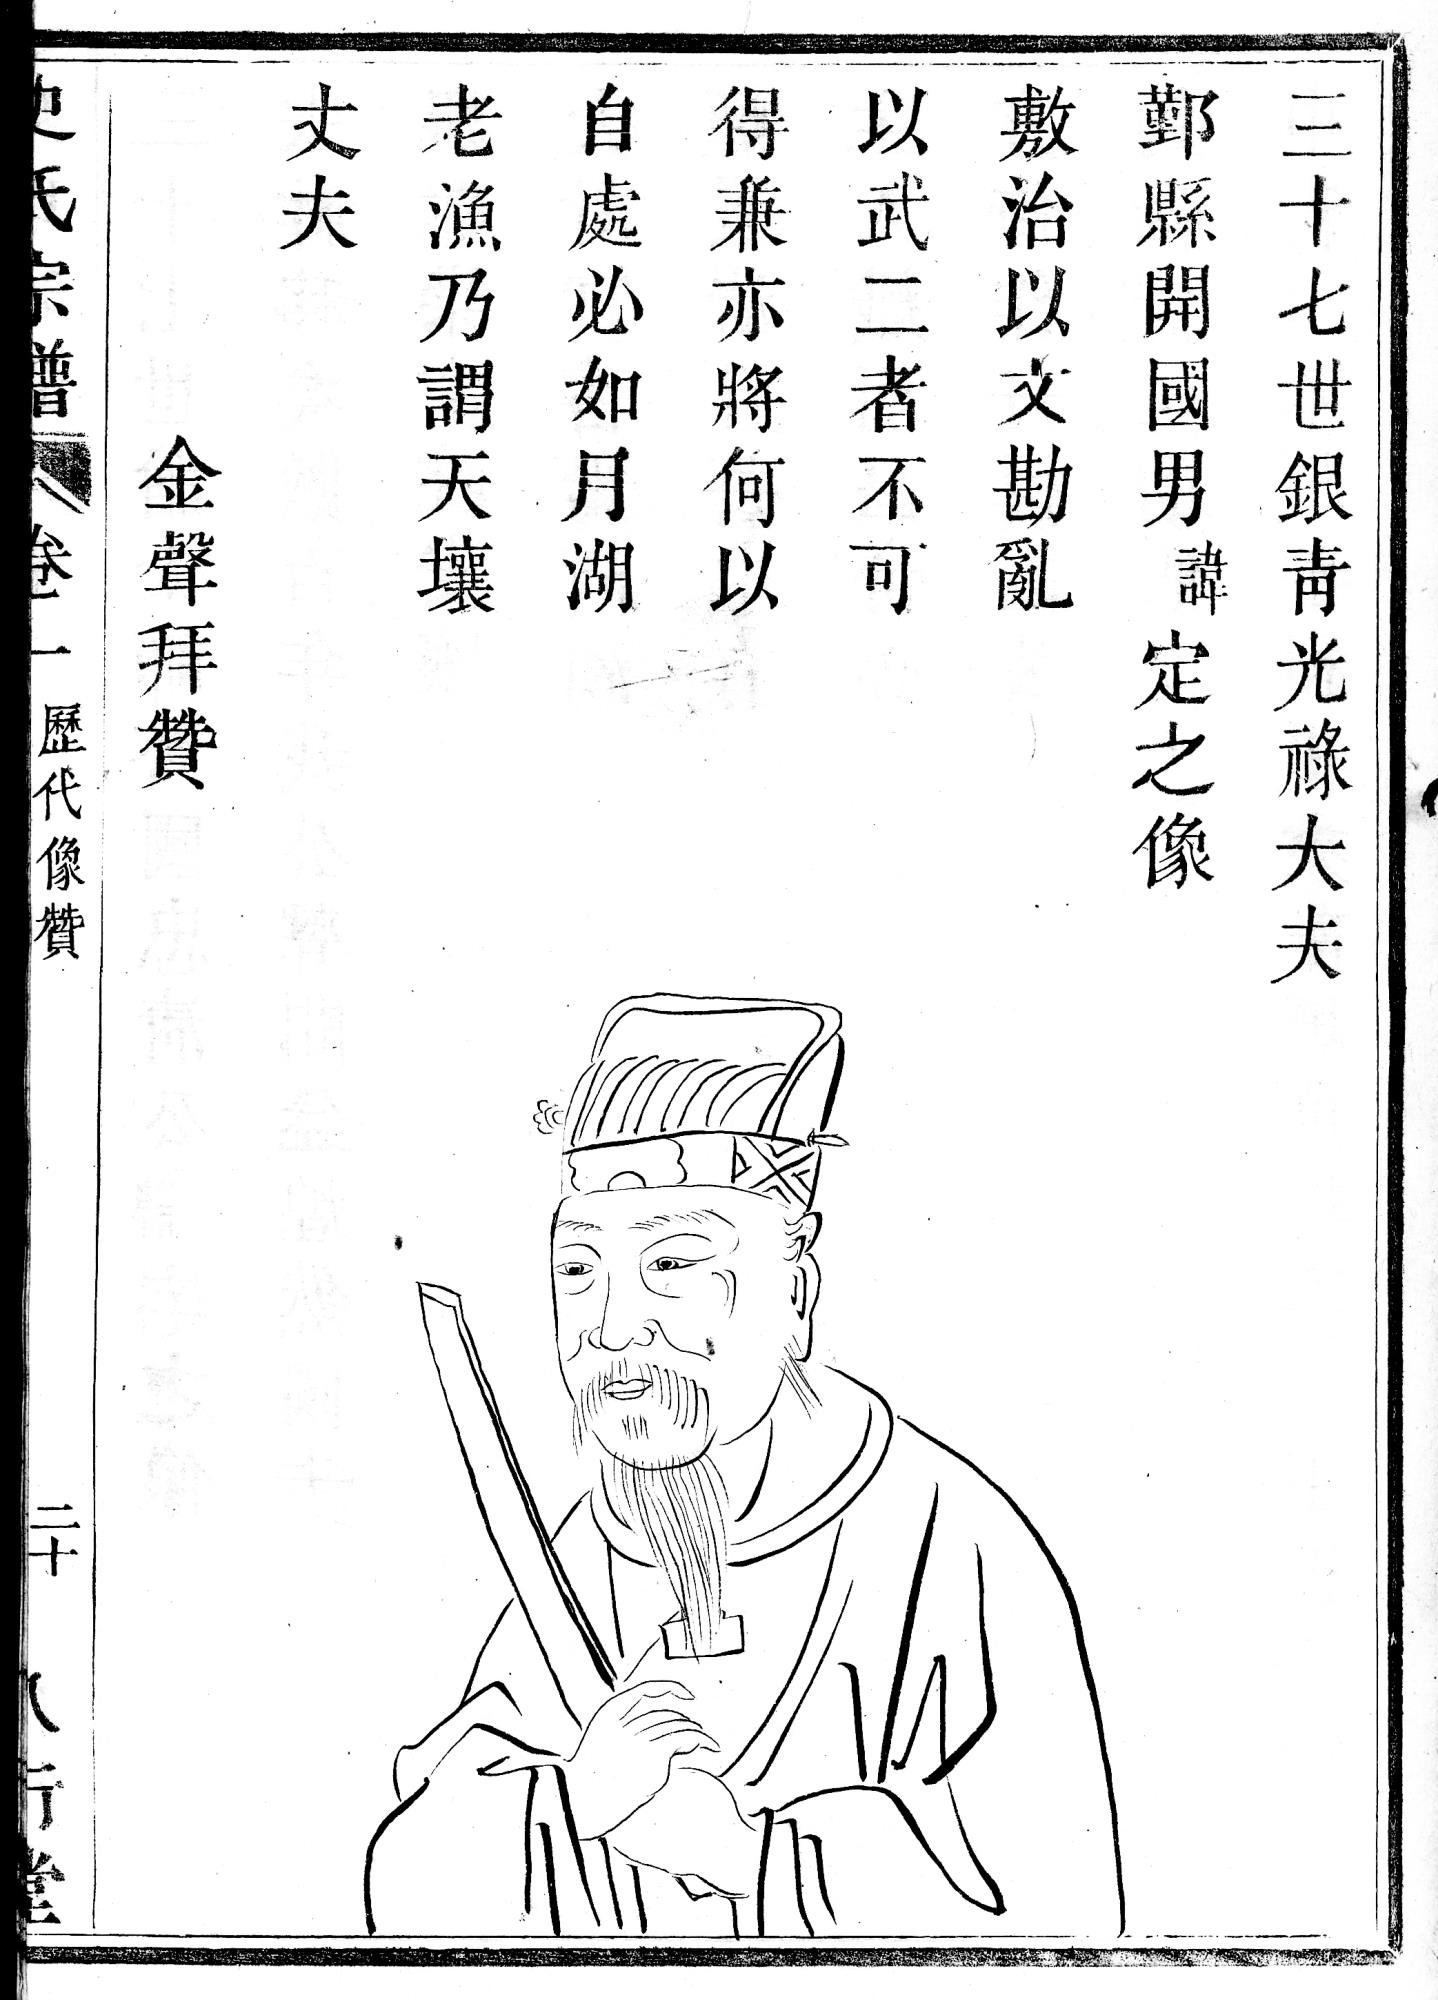 三十七世銀青光祿大夫
鄞縣開國男諱定之像
敷治以文勘亂
以武二者不可
得兼亦將何以
自處必如月湖
老漁乃謂天壤
丈夫
金聲拜贊
史氏宗譜 卷一 歷代像贊 二十 八行堂